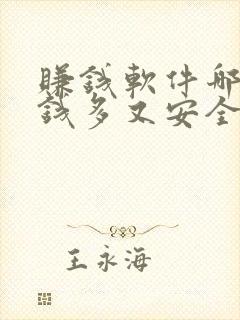 賺錢軟件哪
錢多又安全
王永海